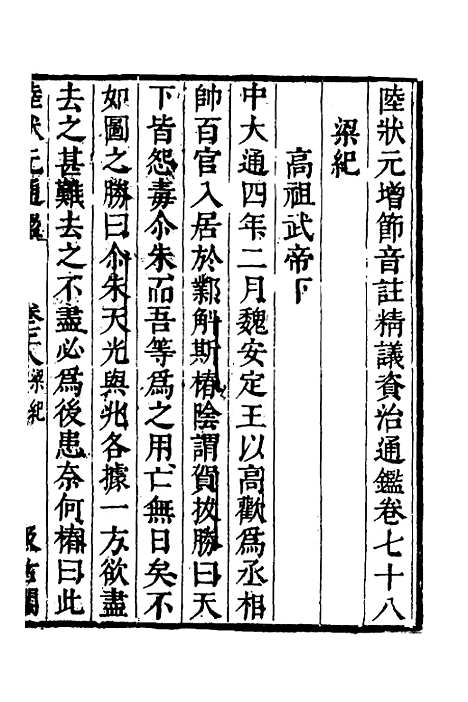 陸狀元增節音註精議資治通鑑卷七十八
梁紀
高祖武帝下
中大通四年二月魏安定王以高歡為丞相
帥百官入居於鄴斛斯椿陰謂賀拔勝曰天
下皆怨毒尒朱而吾等為之用亡無日矣不
如圖之勝曰尒朱天光與兆各據一方欲盡
去之甚難去之不盡必為後患奈何椿曰此
陸狀元通鑑 梁紀